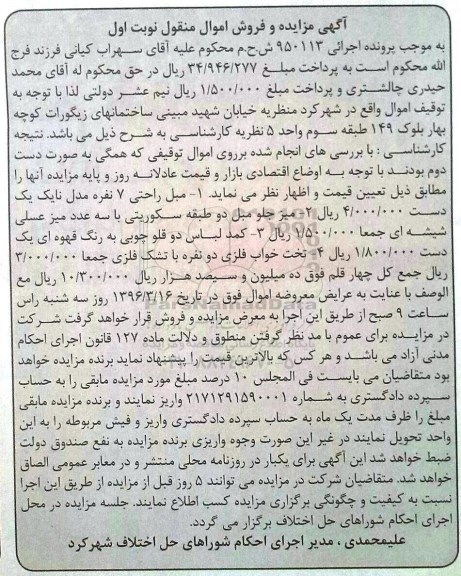 آگهی مزایده و فروش اموال منقول نوبت اول
به موجب پرونده اجرائی ۹۵۰۱۱۳ ش.ح.م محکوم علیه آقای سهراب کیانی فرزند فرج
الله محکوم است به پرداخت مبلغ ۳۴/۹۴۶/۲۷۷ ریال در حق محکوم له آقای محمد
حیدری چالشتری و پرداخت مبلغ ۱/۵۰۰/۰۰۰ ریال نیم عشر دولتی لذا با توجه به
توقیف اموال واقع در شهرکرد منظریه خیابان شهید مبینی ساختمانهای زیگورات کوچه
بهار بلوک ۱۴۹ طبقه سوم واحد ۵ نظریه کارشناسی به شرح ذیل می باشد. نتیجه
کارشناسی : با بررسی های انجام شده برروی اموال توقیفی که همگی به صورت دست
دوم بودند با توجه به اوضاع اقتصادی بازار و قیمت عادلانه روز و پایه مزایده آنها را
مطابق ذیل تعیین قیمت و اظهار نظر می نماید. ۱- مبل راحتی ۷ نفره مدل نایک یک
دست ۴/۰۰۰/۰۰۰ ریال ۲- میز جلو مبل دو طبقه سکوریتی با سه عدد میز عسلی
شیشه ای جمعا ۱/۵۰۰/۰۰۰ ریال ۳- کمد لباس دو قلو چوبی به رنگ قهوه ای یک
دست ۱/۸۰۰/۰۰۰ ریال ۴- تخت خواب فلزی دو نفره با تشک فلزی جمعا ۳/۰۰۰/۰۰۰
ریال جمع کل چهار قلم فوق ده میلیون و سیصد هزار ریال ۱۰/۳۰۰/۰۰۰ ریال مع
الوصف با عنایت به عرایض معروضه اموال فوق در تاریخ ۱۳۹۶/۳/۱۶ روز سه شنبه راس
ساعت ۹ صبح از طریق این اجرا به معرض مزایده و فروش قرار خواهد گرفت شرکت
در مزایده برای عموم با مد نظر گرفتن منطوق و دلالت ماده ۱۲۷ قانون اجرای احکام
مدنی آزاد می باشد و هر کس که بالاترین قیمت را پیشنهاد نماید برنده مزایده خواهد
بود متقاضیان می بایست فی المجلس ۱۰ درصد مبلغ مورد مزایده مابقی را به حساب
سپرده دادگستری به شماره ۲۱۷۱۲۹۱۵۹۰۰۰۱ واریز نمایند و برنده مزایده مابقی
مبلغ را ظرف مدت یک ماه به حساب سپرده دادگستری واریز و فیش مربوطه را به این
واحد تحویل نمایند در غیر این صورت وجوه واریزی برنده مزایده به نفع صندوق دولت
ضبط خواهد شد این آگهی برای یکبار در روزنامه محلی منتشر و در معابر عمومی الصاق
خواهد شد. متقاضیان شرکت در مزایده می توانند ۵ روز قبل از مزایده از طریق این اجرا
نسبت به کیفیت و چگونگی برگزاری مزایده کسب اطلاع نمایند. جلسه مزایده در محل
اجرای احکام شوراهای حل اختلاف برگزار می گردد.
علیمحمدی ، مدیر اجرای احکام شوراهای حل اختلاف شهرکرد